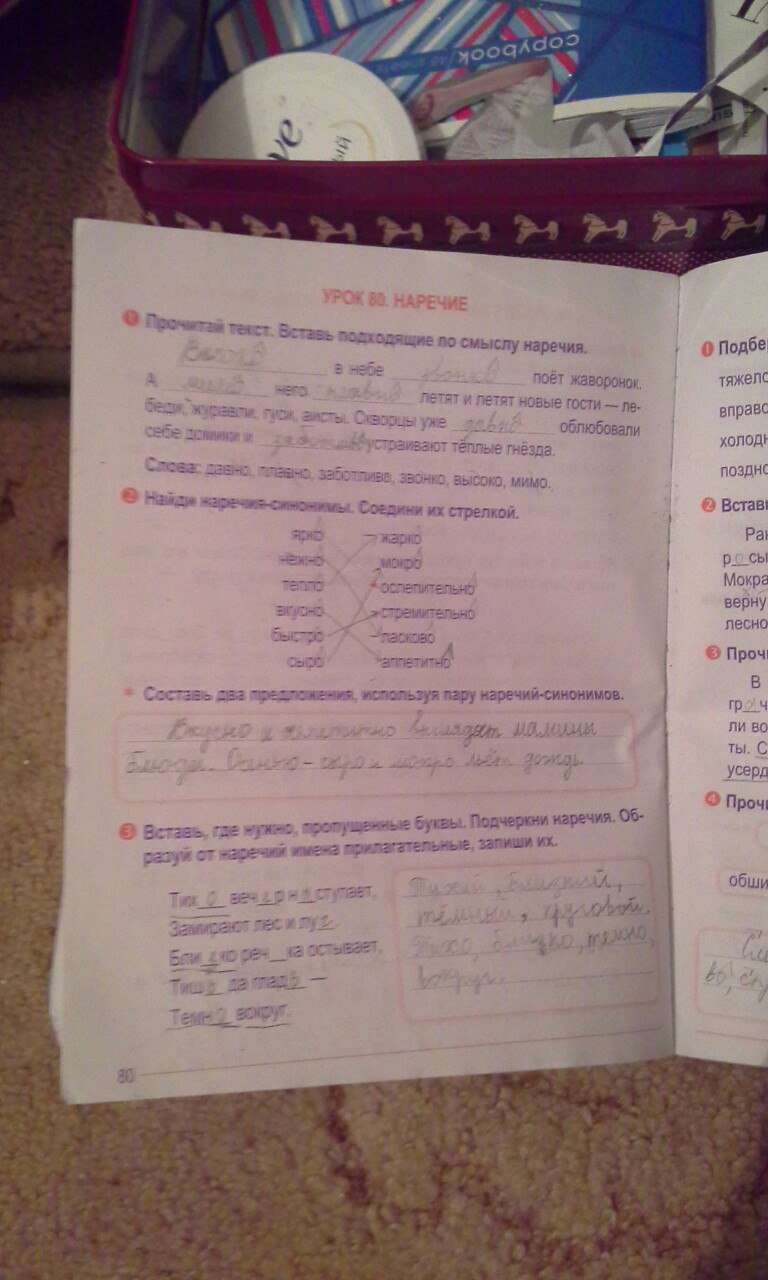 copybook
УРОК 80. НАРЕЧИЕ
1 Прочитай текст. Вставь подходящие по смыслу наречия.
в небе звонко поёт жаворонок.
А мимо него плавно летят и летят новые гости — ле-
беди, журавли, гуси, аисты. Скворцы уже давно облюбовали
себе домики и заботливо устраивают тёплые гнёзда.
Слова: давно, плавно, заботливо, звонко, высоко, мимо.
2 Найди наречия-синонимы. Соедини их стрелкой.
ярко жарко
нежно мокро
тепло ослепительно
вкусно стремительно
быстро ласково
сыро аппетитно
* Составь два предложения, используя пару наречий-синонимов.
Вкусно и аппетитно выглядят мамины
блюда. Осенью - сыро и мокро льёт дождь
3 Вставь, где нужно, пропущенные буквы. Подчеркни наречия. Об-
разуй от наречий имена прилагательные, запиши их.
Тихо вечер наступает,
Замирают лес и луг.
Близко реч_ка остывает,
Тишь да гладь —
Темно вокруг.
Тихий, близкий,
тёмный, круговой.
Тихо, близко, темно,
вокруг.
80
1 Подбе
тяжело
вправо
холодн
поздно
2 Встав
Ран
росы
Мокра
верну
лесно
3 Прочи
В
грач
ли во
ты. С
усерд
4 Прочи
обши